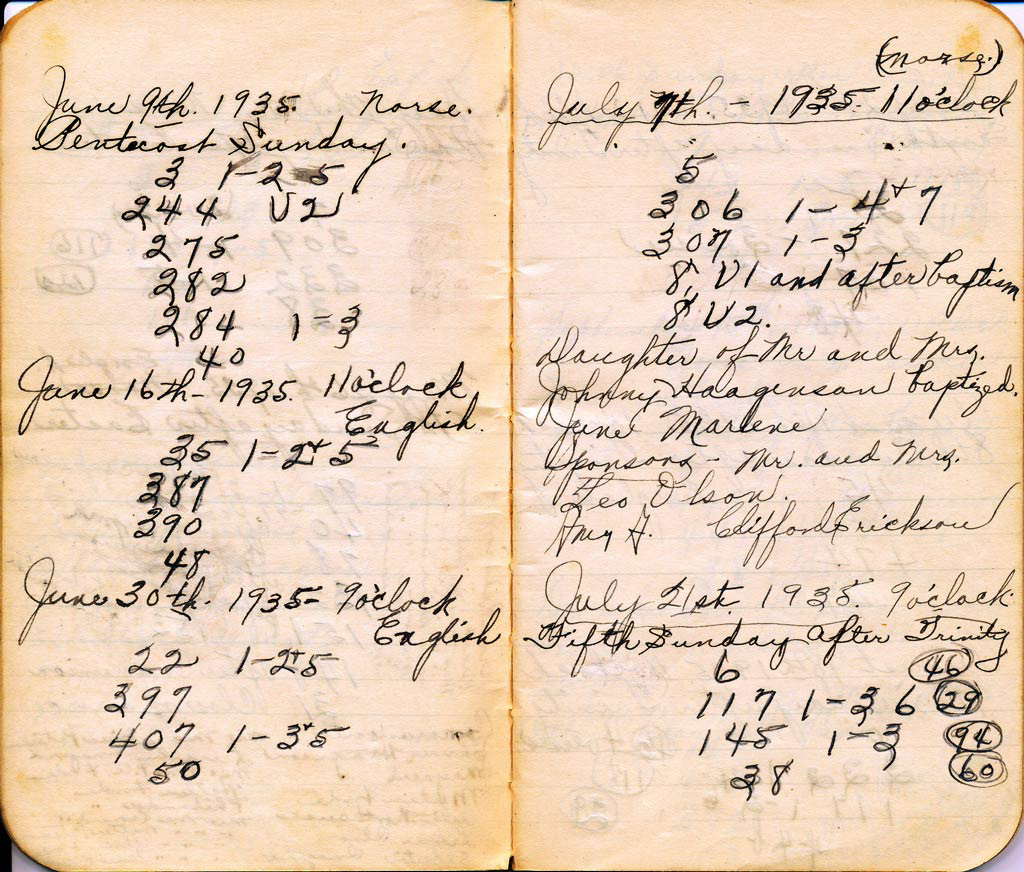 June 9th. 1935. Norse.
Pentecost Sunday.
3 1-2 5
244 V2
275
282
284 1-3
40
June 16th- 1935. 11o'clock
English.
35 1-2+5
387
390
48
June 30th. 1935- 9o'clock
English
22 1-2+5
397
407 1-3+5
50
(Norse.)
July 7th. - 1935. 11o'clock
5
306 1-4+7
307 1-3
8, V1 and after baptism
8 V2.
Daughter of Mr and Mrs.
Johnny Haagenson baptized.
June Marlene
Sponsors - Mr. and Mrs.
Leo Olson.
Amy H. Clifford Erickson
July 21st. 1935. 9o'clock
Fifth Sunday After Trinity
6 46
117 1-3 6 29
145 1-3 94
38 60